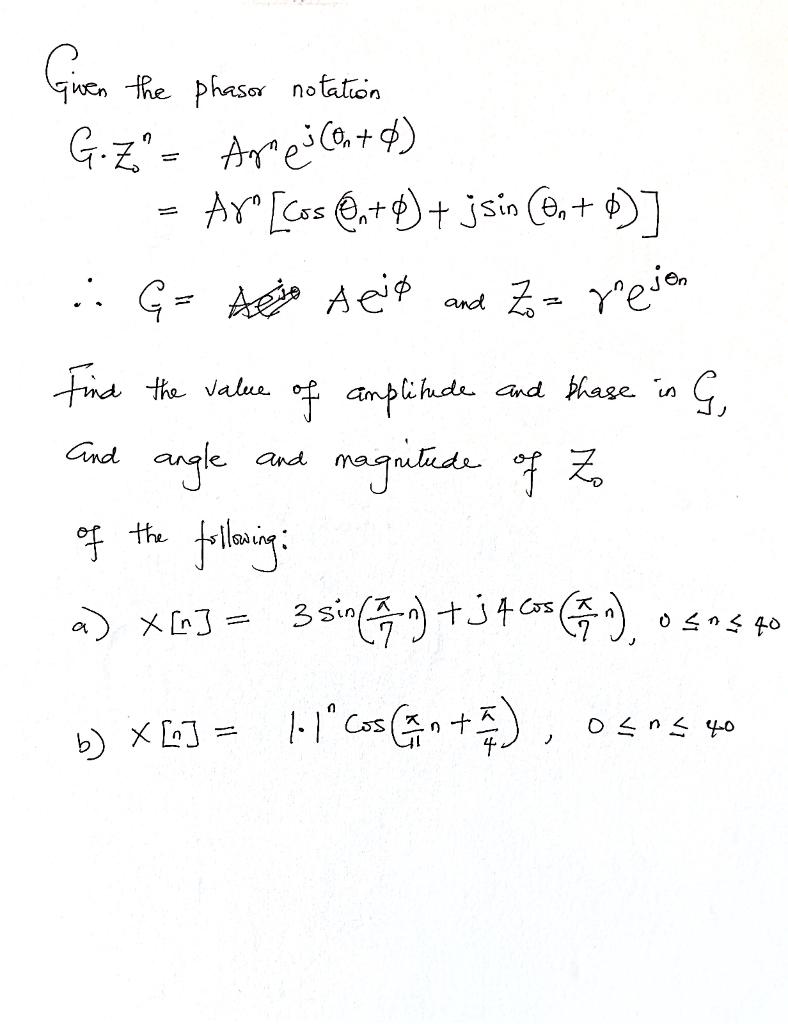 Given the phasor notation
G·Z₀ⁿ = Arⁿe^{j(θn+φ)}
= Arⁿ[Cos(θn+φ) + jsin(θn+φ)]
∴ G = Ae^{jφ} and Z₀ = rⁿe^{jθn}
Find the value of amplitude and phase in G,
and angle and magnitude of Z₀
of the following:
a) X[n] = 3 sin(π/7 n) + j4 cos(π/7 n), 0 ≤ n ≤ 40
b) X[n] = 1.1ⁿ Cos(π/11 n + π/4), 0 ≤ n ≤ 40